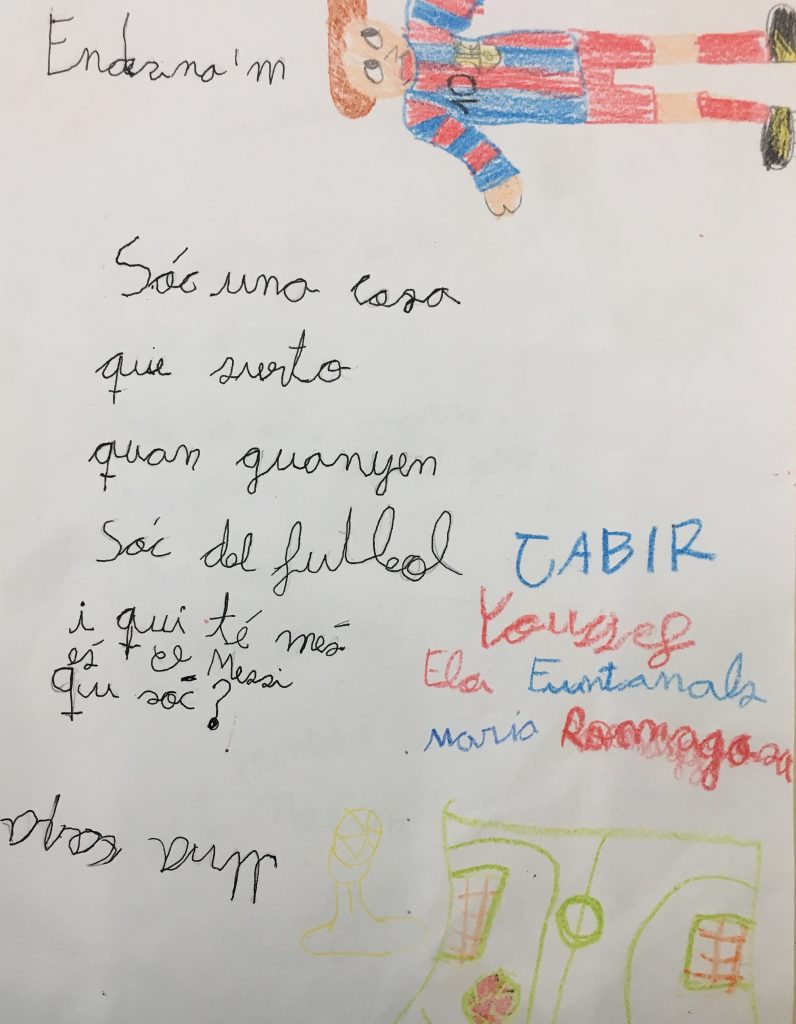 Endevina'm
10
Sóc una cosa
que surto
quan guanyen
Sóc del futbol
i qui té més
és el Messi
Qui sóc?
JABIR
Youssef
Eloi Funtanals
Maria Romagosa
Una copa